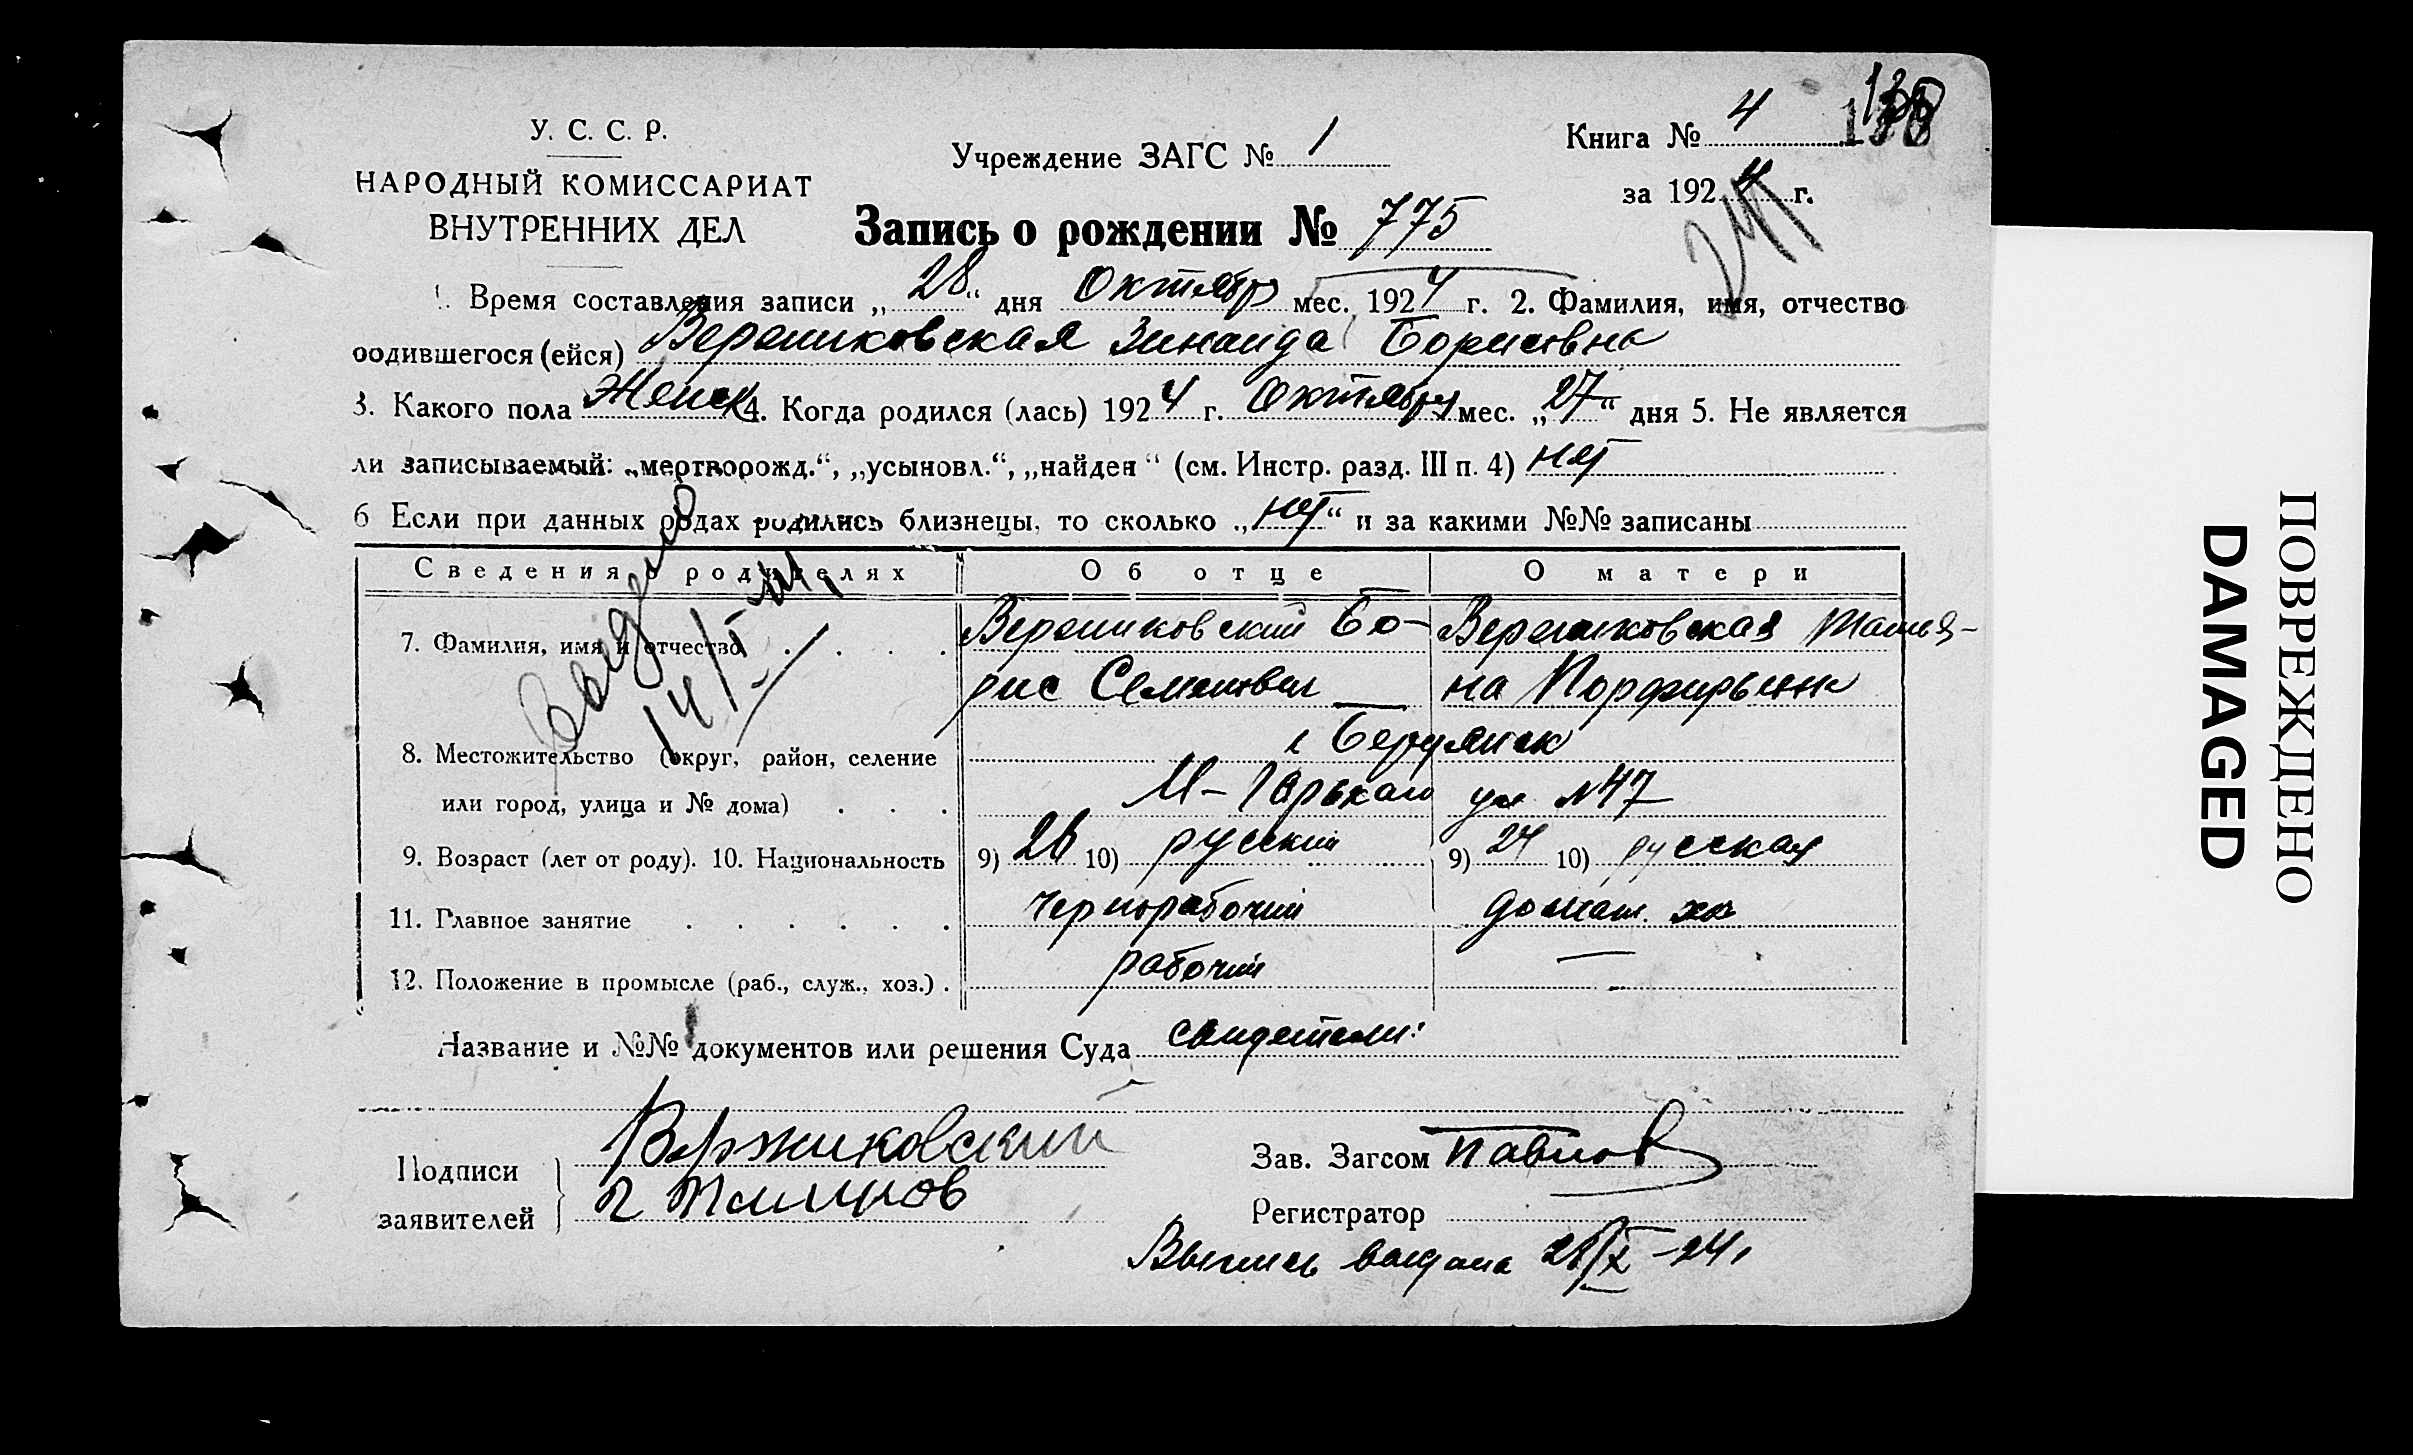 У. С. С. Р.
НАРОДНЫЙ КОМИССАРИАТ
ВНУТРЕННИХ ДЕЛ
Учреждение ЗАГС № 1
Книга № 4
за 1924 г.
Запись о рождении № 775
1. Время составления записи „28“ дня Октябр мес. 1924 г. 2. Фамилия, имя, отчество
родившегося (ейся) Зинаида Борисовна
3. Какого пола Женск 4. Когда родился (лась) 1924 г. Октября мес. „27“ дня 5. Не является
ли записываемый: „мертворожд.“, „усыновл.“, „найден“ (см. Инстр. разд. III п. 4) нет
6 Если при данных родах родились близнецы, то сколько „нет“ и за какими №№ записаны
Сведения о родителях Об отце О матери
7. Фамилия, имя и отчество Бо- Татья-
рис Семенович на Порфирьевн
8. Местожительство (округ, район, селение г Бердянск
или город, улица и № дома) М-Горькаго ул №47
9. Возраст (лет от роду). 10. Национальность 9) 26 10) русский 9) 24 10) русская
11. Главное занятие чернорабочий домаш. хоз
12. Положение в промысле (раб., служ., хоз.) рабочий —
Название и №№ документов или решения Суда свидетели:
Подписи
заявителей
Зав. Загсом Павлов
Регистратор
Выпись выдана 28/X-24
ПОВРЕЖДЕНО
DAMAGED